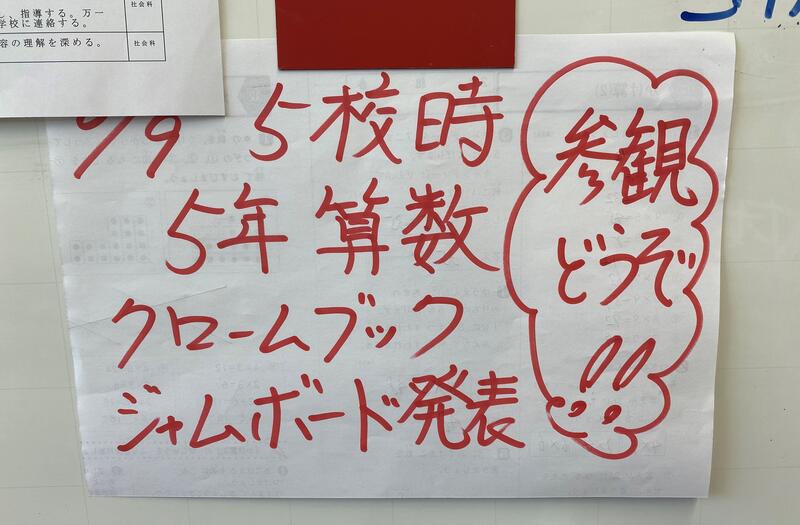 し、指導する。万一
学校に連絡する。
容の理解を深める。
社会科
社会科
/9 5校時
5年 算数
クロームブック
ジャムボード発表
参観
どうぞ